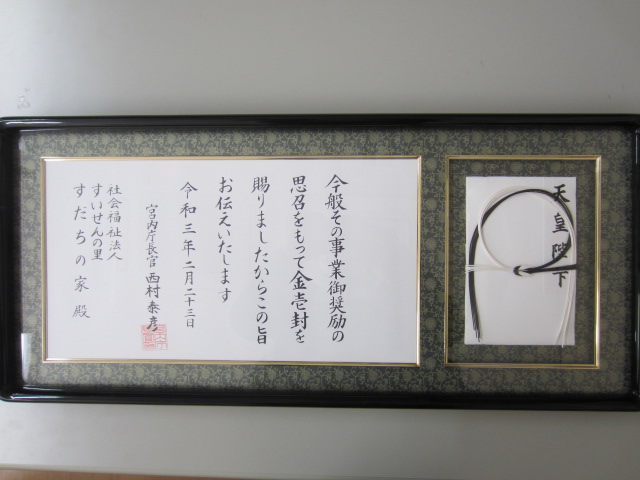 天皇陛下
今般その事業御奨励の
思召をもって金壱封を
賜りましたからこの旨
お伝えいたします
令和三年二月二十三日
宮内庁長官 西村泰彦
社会福祉法人
すいせんの里
すだちの家 殿